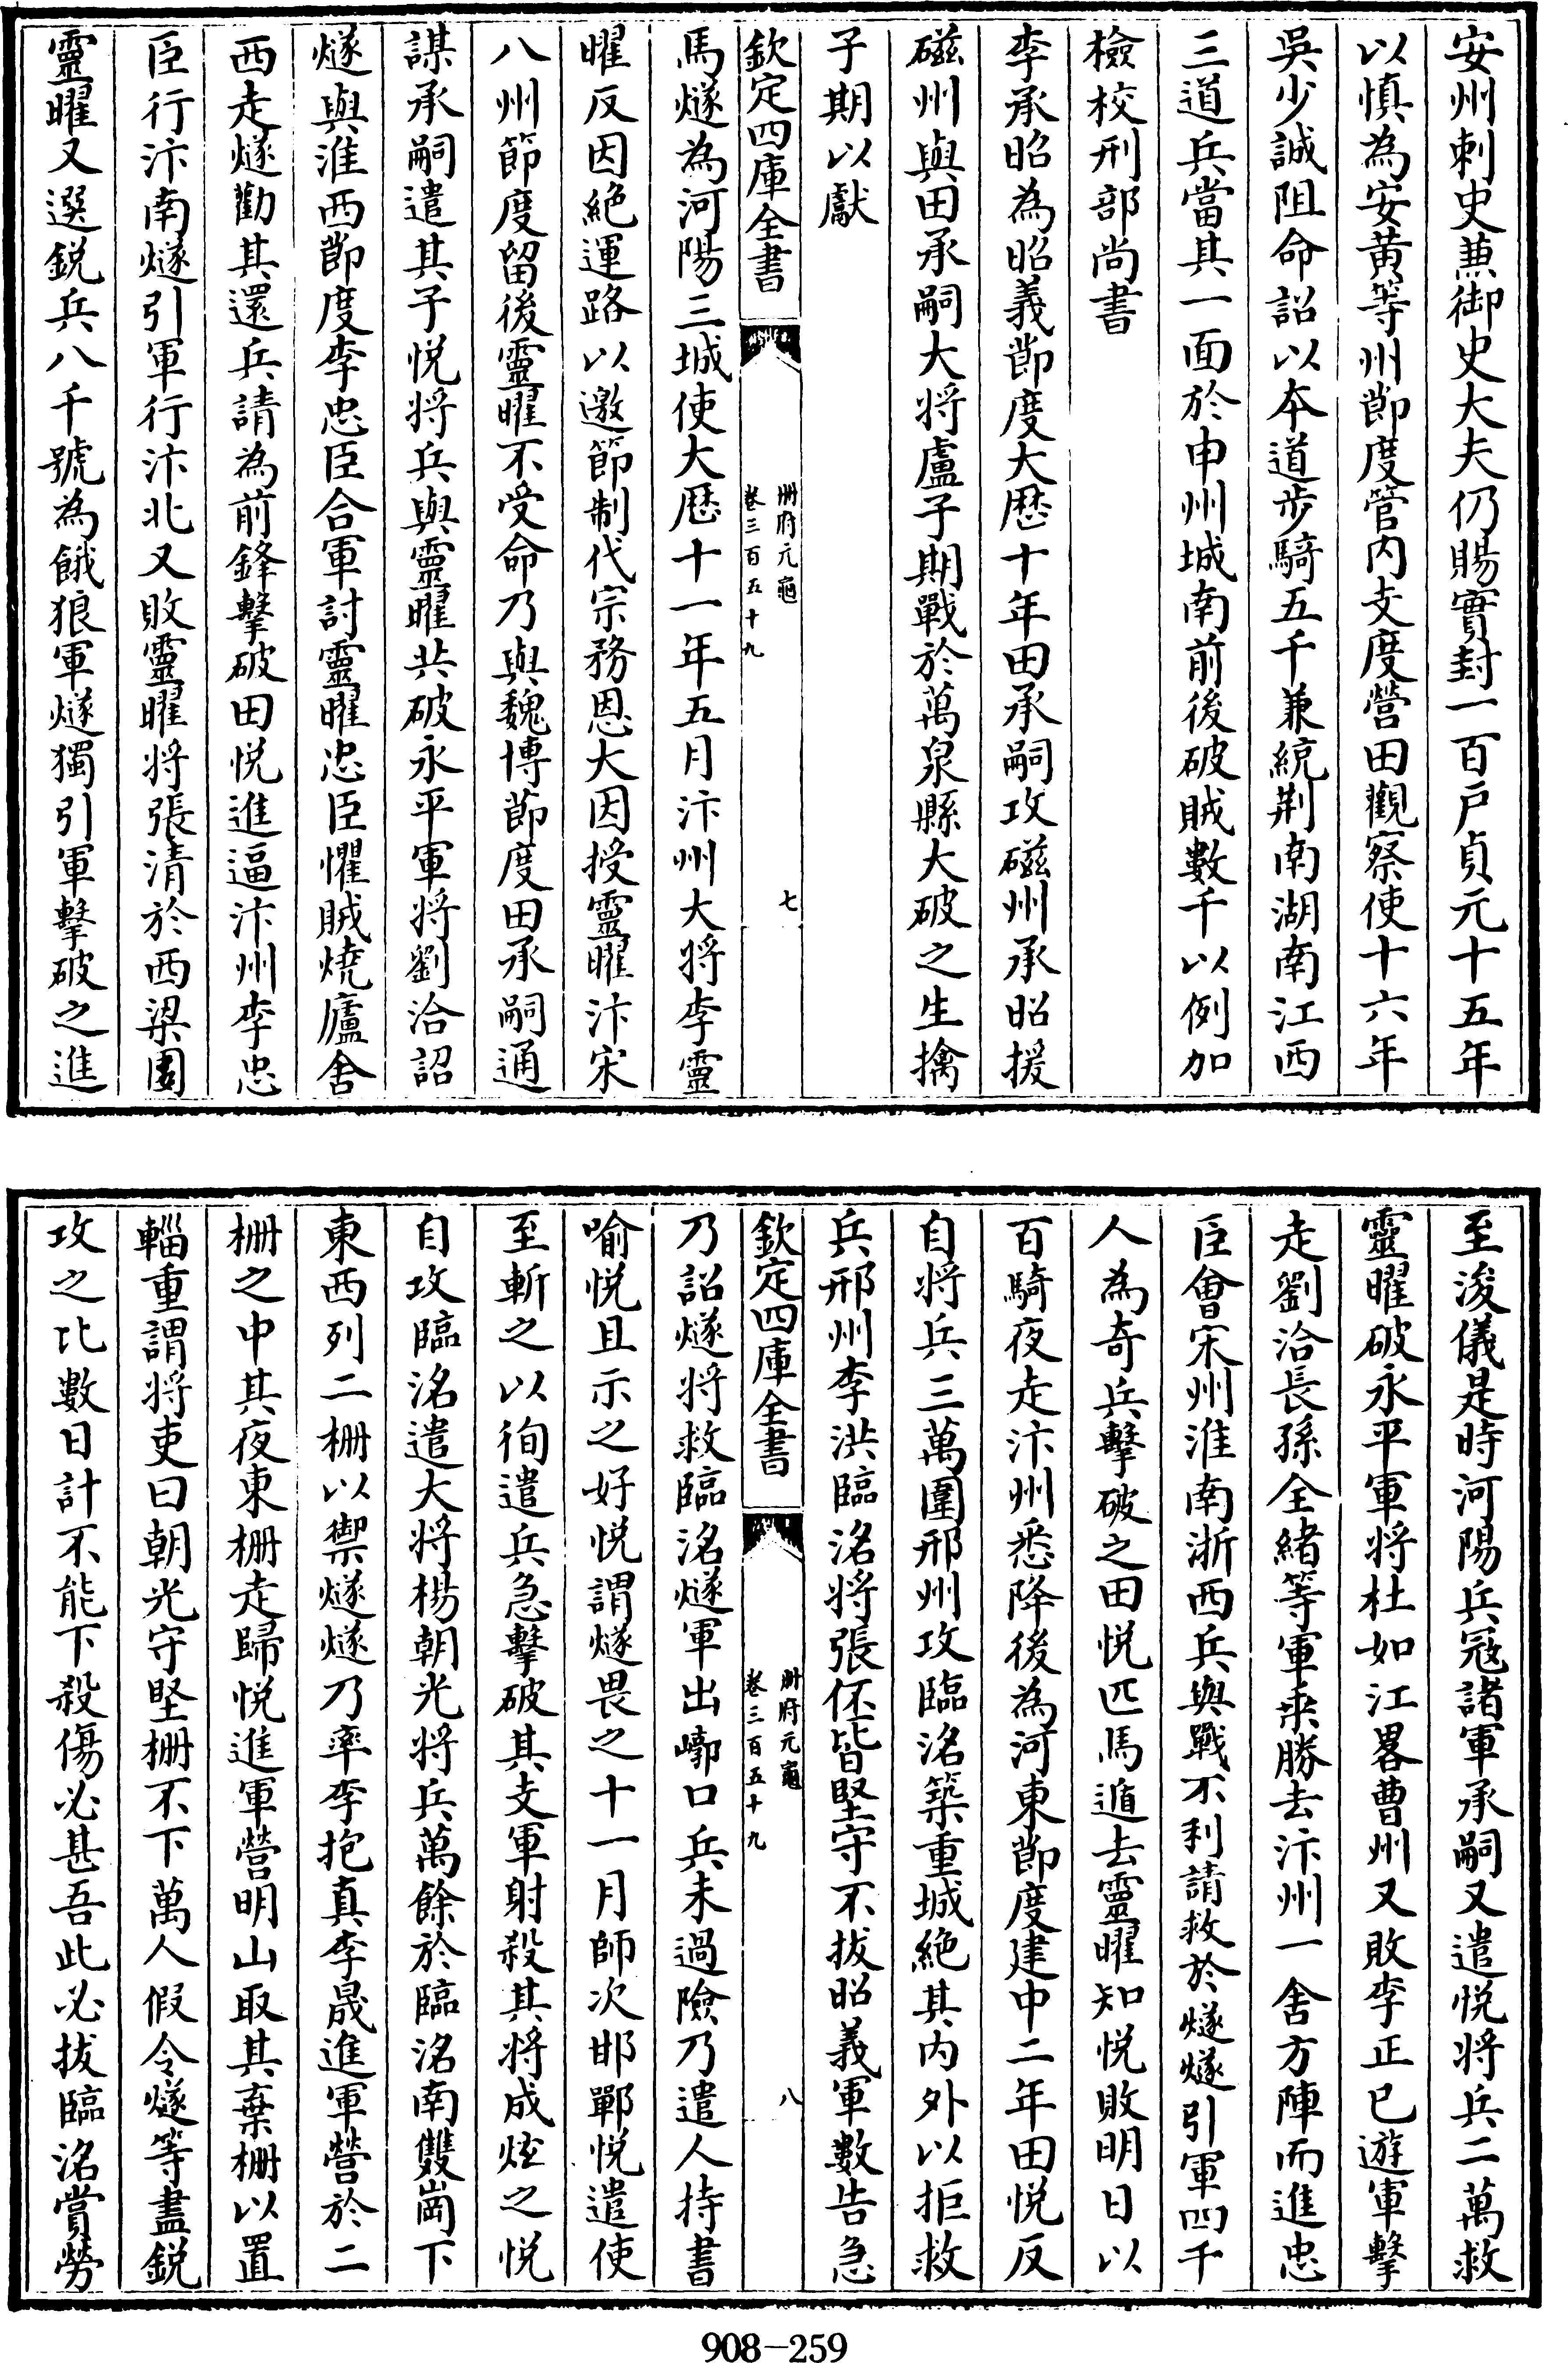 安州刺史兼御史大夫仍賜實封一百戸貞元十五年
以慎為安黄等州節度管内支度營田觀察使十六年
吳少誠阻命詔以本道步騎五千兼統荆南湖南江西
三道兵當其一面於申州城南前後破賊數千以例加
檢校刑部尚書
李承昭為昭義節度大厯十年田承嗣攻磁州承昭援
磁州與田承嗣大將盧子期戰於萬泉縣大破之生擒
子期以獻
欽定四庫全書
册府元龜
卷三百五十九
七
馬燧為河陽三城使大厯十一年五月汴州大將李靈
曜反因絶運路以邀節制代宗務恩大因授靈曜汴宋
八州節度留後靈曜不受命乃與魏博節度田承嗣通
謀承嗣遣其子悦將兵與靈曜共破永平軍將劉洽詔
燧與淮西節度李忠臣合軍討靈曜忠臣懼賊燒廬舍
西走燧勸其還兵請為前鋒擊破田悦進逼汴州李忠
臣行汴南燧引軍行汴北又敗靈曜將張清於西梁圂
靈曜又選鋭兵八千號為餓狼軍燧獨引軍擊破之進
至浚儀是時河陽兵冠諸軍承嗣又遣悦將兵二萬救
靈曜破永平軍將杜如江畧曹州又敗李正已遊軍擊
走劉洽長孫全緒等軍乘勝去汴州一舍方陣而進忠
臣會宋州淮南浙西兵與戰不利請救於燧燧引軍四千
人為奇兵擊破之田悦匹馬遁去靈曜知悦敗明日以
百騎夜走汴州悉降後為河東節度建中二年田悦反
自將兵三萬圍邢州攻臨洺築重城絶其内外以拒救
兵邢州李洪臨洺將張伾皆堅守不拔昭義軍數告急
欽定四庫全書
册府元龜
卷三百五十九
八
乃詔燧將救臨洺燧軍出嶂口兵未過險乃遣人持書
喻悦且示之好悦謂燧畏之十一月師次邯鄲悦遣使
至斬之以徇遣兵急擊破其支軍射殺其將成炫之悦
自攻臨洺遣大將楊朝光將兵萬餘於臨洺南雙岡下
東西列二柵以禦燧燧乃率李抱真李晟進軍營於二
柵之中其夜東柵走歸悦進軍營明山取其棄柵以置
輜重謂將吏曰朝光守堅柵不下萬人假令燧等盡鋭
攻之比數日計不能下殺傷必甚吾此必拔臨洺賞勞
908-259